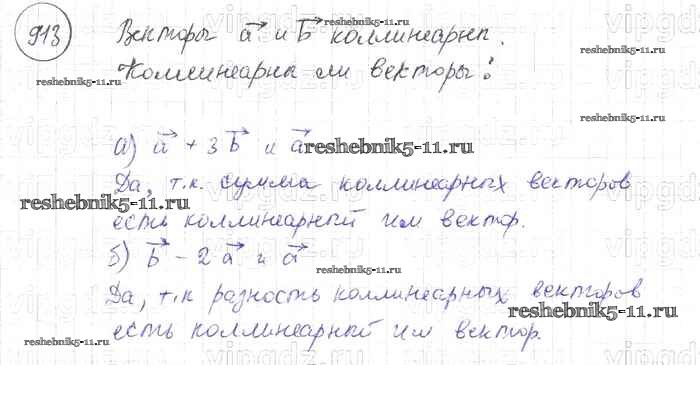 913
Векторы a⃗ и b⃗ коллинеарны.
Коллинеарны ли векторы:
а) a⃗ + 3b⃗ и a⃗
Да, т.к. сумма коллинеарных векторов
есть коллинеарный им вектор.
б) b⃗ - 2a⃗ и a⃗
Да, т.к разность коллинеарных векторов
есть коллинеарный им вектор.
reshebnik5-11.ru
reshebnik5-11.ru
reshebnik5-11.ru
reshebnik5-11.ru
reshebnik5-11.ru
reshebnik5-11.ru
reshebnik5-11.ru
reshebnik5-11.ru